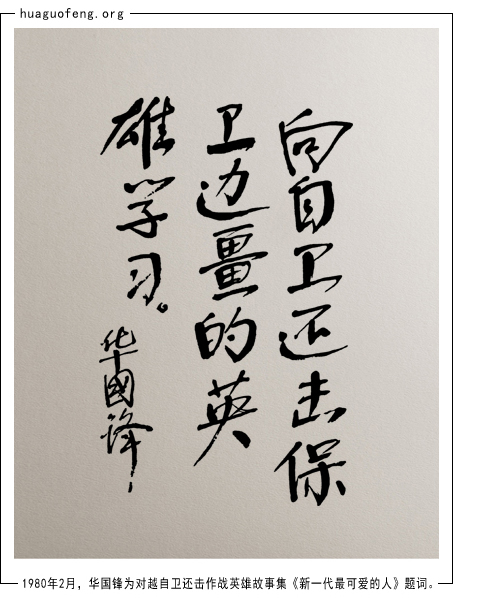 huaguofeng.org
向自卫还击保
卫边畺的英
雄学习。
华國锋
1980年2月，华国锋为对越自卫还击作战英雄故事集《新一代最可爱的人》题词。